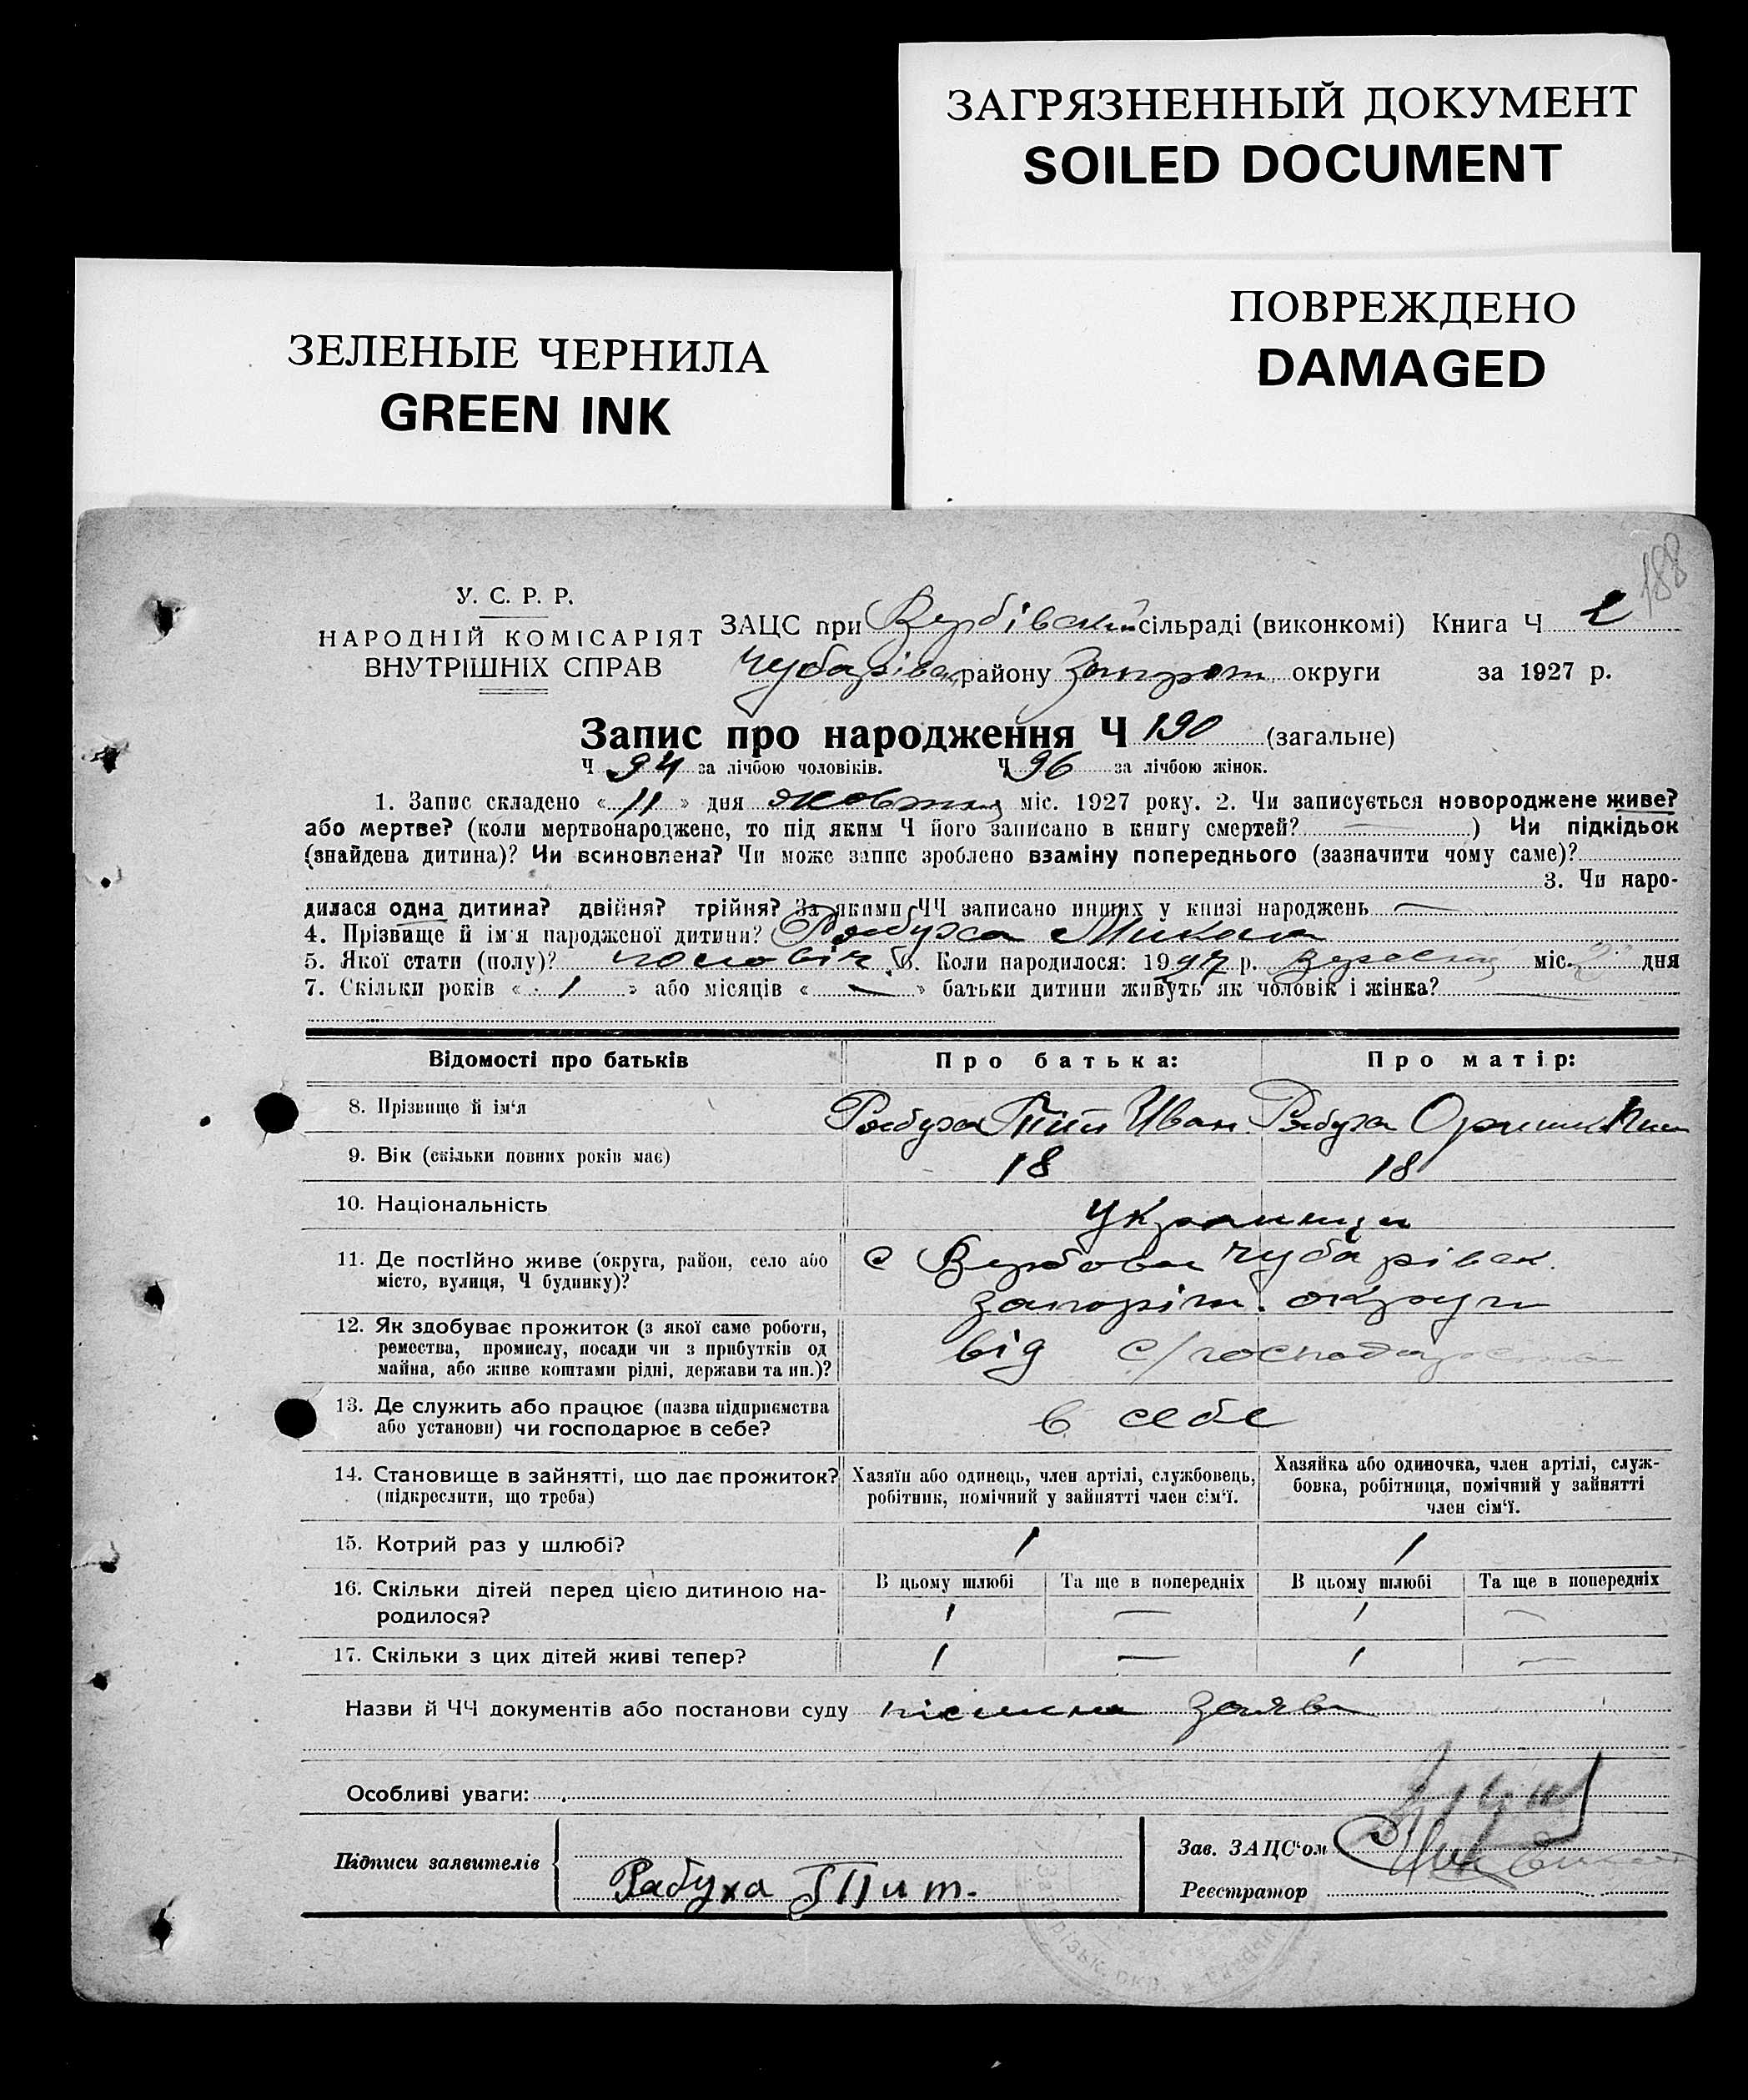 ЗАГРЯЗНЕННЫЙ ДОКУМЕНТ
SOILED DOCUMENT
ПОВРЕЖДЕНО
DAMAGED
ЗЕЛЕНЫЕ ЧЕРНИЛА
GREEN INK
188
У. С. Р. Р.
НАРОДНІЙ КОМІСАРІЯТ
ВНУТРІШНІХ СПРАВ
ЗАЦС при Вербівській сільраді (виконкомі) Книга Ч 2
Чубарівськ району Запоріж округи за 1927 р.
Запис про народження Ч 190 (загальне)
Ч 94 за лічбою чоловіків. Ч 96 за лічбою жінок.
1. Запис складено « 11 » дня жовтня міс. 1927 року. 2. Чи записується новороджене живе?
або мертве? (коли мертвонароджене, то під яким Ч його записано в книгу смертей? — ) Чи підкідьок
(знайдена дитина)? Чи всиновлена? Чи може запис зроблено взаміну попереднього (зазначити чому саме)?
3. Чи наро-
дилася одна дитина? двійня? трійня? За якими ЧЧ записано инших у книзі народжень —
4. Прізвище й ім'я народженої дитини? Рябуха Микола
5. Якої стати (полу)? чоловіч. 6. Коли народилося: 1927 р. Вересня міс. дня
7. Скільки років « 1 » або місяців « — » батьки дитини живуть як чоловік і жінка?
Відомості про батьків Про батька: Про матір:
8. Прізвище й ім'я Рябуха Тит Иван. Рябуха
9. Вік (скільки повних років має) 18 18
10. Національність Українци
11. Де постійно живе (округа, район, село або
місто, вулиця, Ч будинку)?
с Вербове Чубарівськ.
Запоріж. округи
12. Як здобуває прожиток (з якої саме роботи,
ремества, промислу, посади чи з прибутків од
майна, або живе коштами рідні, держави та ин.)?
від с/господарства
13. Де служить або працює (назва підприємства
або установи) чи господарює в себе?
в себе
14. Становище в зайнятті, що дає прожиток?
(підкреслити, що треба)
Хазяїн або одинець, член артілі, службовець,
робітник, помічний у зайнятті член сім'ї.
Хазяйка або одиночка, член артілі, служ-
бовка, робітниця, помічний у зайнятті
член сім'ї.
15. Котрий раз у шлюбі? 1 1
16. Скільки дітей перед цією дитиною на-
родилося?
В цьому шлюбі Та ще в попередніх В цьому шлюбі Та ще в попередніх
1 — 1 —
17. Скільки з цих дітей живі тепер? 1 — 1 —
Назви й ЧЧ документів або постанови суду заява
Особливі уваги:
Підписи заявителів
Рабуха Тит.
Зав. ЗАЦС'ом
Реєстратор